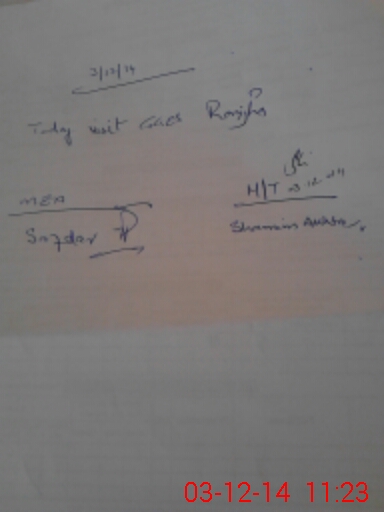 3/12/14
Today visit GGES Ranjha
MEA
Safdar
H/T 03-12-14
Shamim Akhtar
03-12-14 11:23